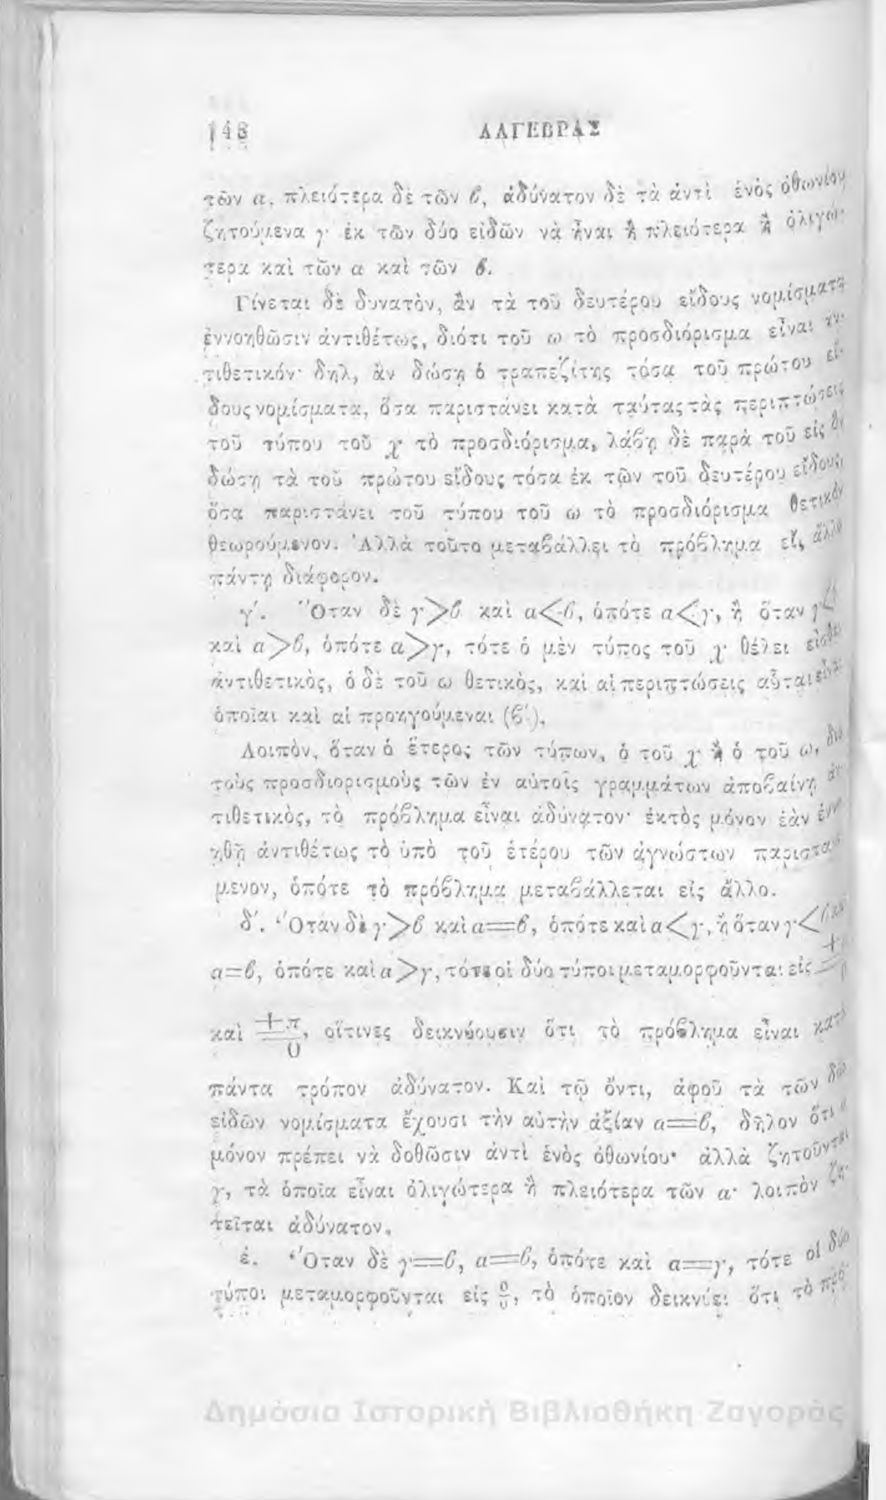 148
ΑΛΓΕΒΡΑΣ
τῶν α, πλειότερα δὲ τῶν β, ἀδύνατον δὲ τὰ ἀντὶ ἑνὸς ὀθωνίου
ζητούμενα γ ἐκ τῶν δύο εἰδῶν νὰ ἦναι ἢ πλειότερα ἢ ὀλιγώ-
τερα καὶ τῶν α καὶ τῶν β.
Γίνεται δὲ δυνατὸν, ἂν τὰ τοῦ δευτέρου εἴδους νομίσματα
ἐννοηθῶσιν ἀντιθέτως, διότι τοῦ ω τὸ προσδιόρισμα εἶναι ἀν-
τιθετικόν· δηλ, ἂν δώσῃ ὁ τραπεζίτης τόσα τοῦ πρώτου εἴ-
δους νομίσματα, ὅσα παριστάνει κατὰ ταύτας τὰς περιπτώσεις
τοῦ τύπου τοῦ χ τὸ προσδιόρισμα, λάβῃ δὲ παρὰ τοῦ εἰς ὃν
δώσῃ τὰ τοῦ πρώτου εἴδους τόσα ἐκ τῶν τοῦ δευτέρου εἴδους,
ὅσα παριστάνει τοῦ τύπου τοῦ ω τὸ προσδιόρισμα θετικὸν
θεωρούμενον. Ἀλλὰ τοῦτο μεταβάλλει τὸ πρόβλημα εἰς ἄλλο
πάντῃ διάφορον.
γ′. Ὅταν δὲ γ>β καὶ α<β, ὁπότε α<γ, ἢ ὅταν γ<β
καὶ α>β, ὁπότε α>γ, τότε ὁ μὲν τύπος τοῦ χ θέλει εἶσθαι
ἀντιθετικὸς, ὁ δὲ τοῦ ω θετικὸς, καὶ αἱ περιπτώσεις αὗται εἶναι
ὁποῖαι καὶ αἱ προηγούμεναι (β′).
Λοιπὸν, ὅταν ὁ ἕτερος τῶν τύπων, ὁ τοῦ χ ἢ ὁ τοῦ ω, διὰ
τοὺς προσδιορισμοὺς τῶν ἐν αὐτοῖς γραμμάτων ἀποβαίνῃ ἀν-
τιθετικὸς, τὸ πρόβλημα εἶναι ἀδύνατον· ἐκτὸς μόνον ἐὰν ἐννο-
ηθῇ ἀντιθέτως τὸ ὑπὸ τοῦ ἑτέρου τῶν ἀγνώστων παριστα-
μενον, ὁπότε τὸ πρόβλημα μεταβάλλεται εἰς ἄλλο.
δ′. Ὅταν δὲ γ>β καὶ α=β, ὁπότε καὶ α<γ, ἢ ὅταν γ<β καὶ
α=β, ὁπότε καὶ α>γ, τότε οἱ δύο τύποι μεταμορφοῦνται εἰς
καὶ ±π/0, οἵτινες δεικνύουσιν ὅτι τὸ πρόβλημα εἶναι κατὰ
πάντα τρόπον ἀδύνατον. Καὶ τῷ ὄντι, ἀφοῦ τὰ τῶν δύο
εἰδῶν νομίσματα ἔχουσι τὴν αὐτὴν ἀξίαν α=β, δῆλον ὅτι α
μόνον πρέπει νὰ δοθῶσιν ἀντὶ ἑνὸς ὀθωνίου· ἀλλὰ ζητοῦνται
γ, τὰ ὁποῖα εἶναι ὀλιγώτερα ἢ πλειότερα τῶν α· λοιπὸν ζη-
τεῖται ἀδύνατον.
έ. Ὅταν δὲ γ=β, α=β, ὁπότε καὶ α=γ, τότε οἱ δύο
τύποι μεταμορφοῦνται εἰς 0/0, τὸ ὁποῖον δεικνύει ὅτι τὸ πρό-
Δημόσια Ιστορική Βιβλιοθήκη Ζαγοράς